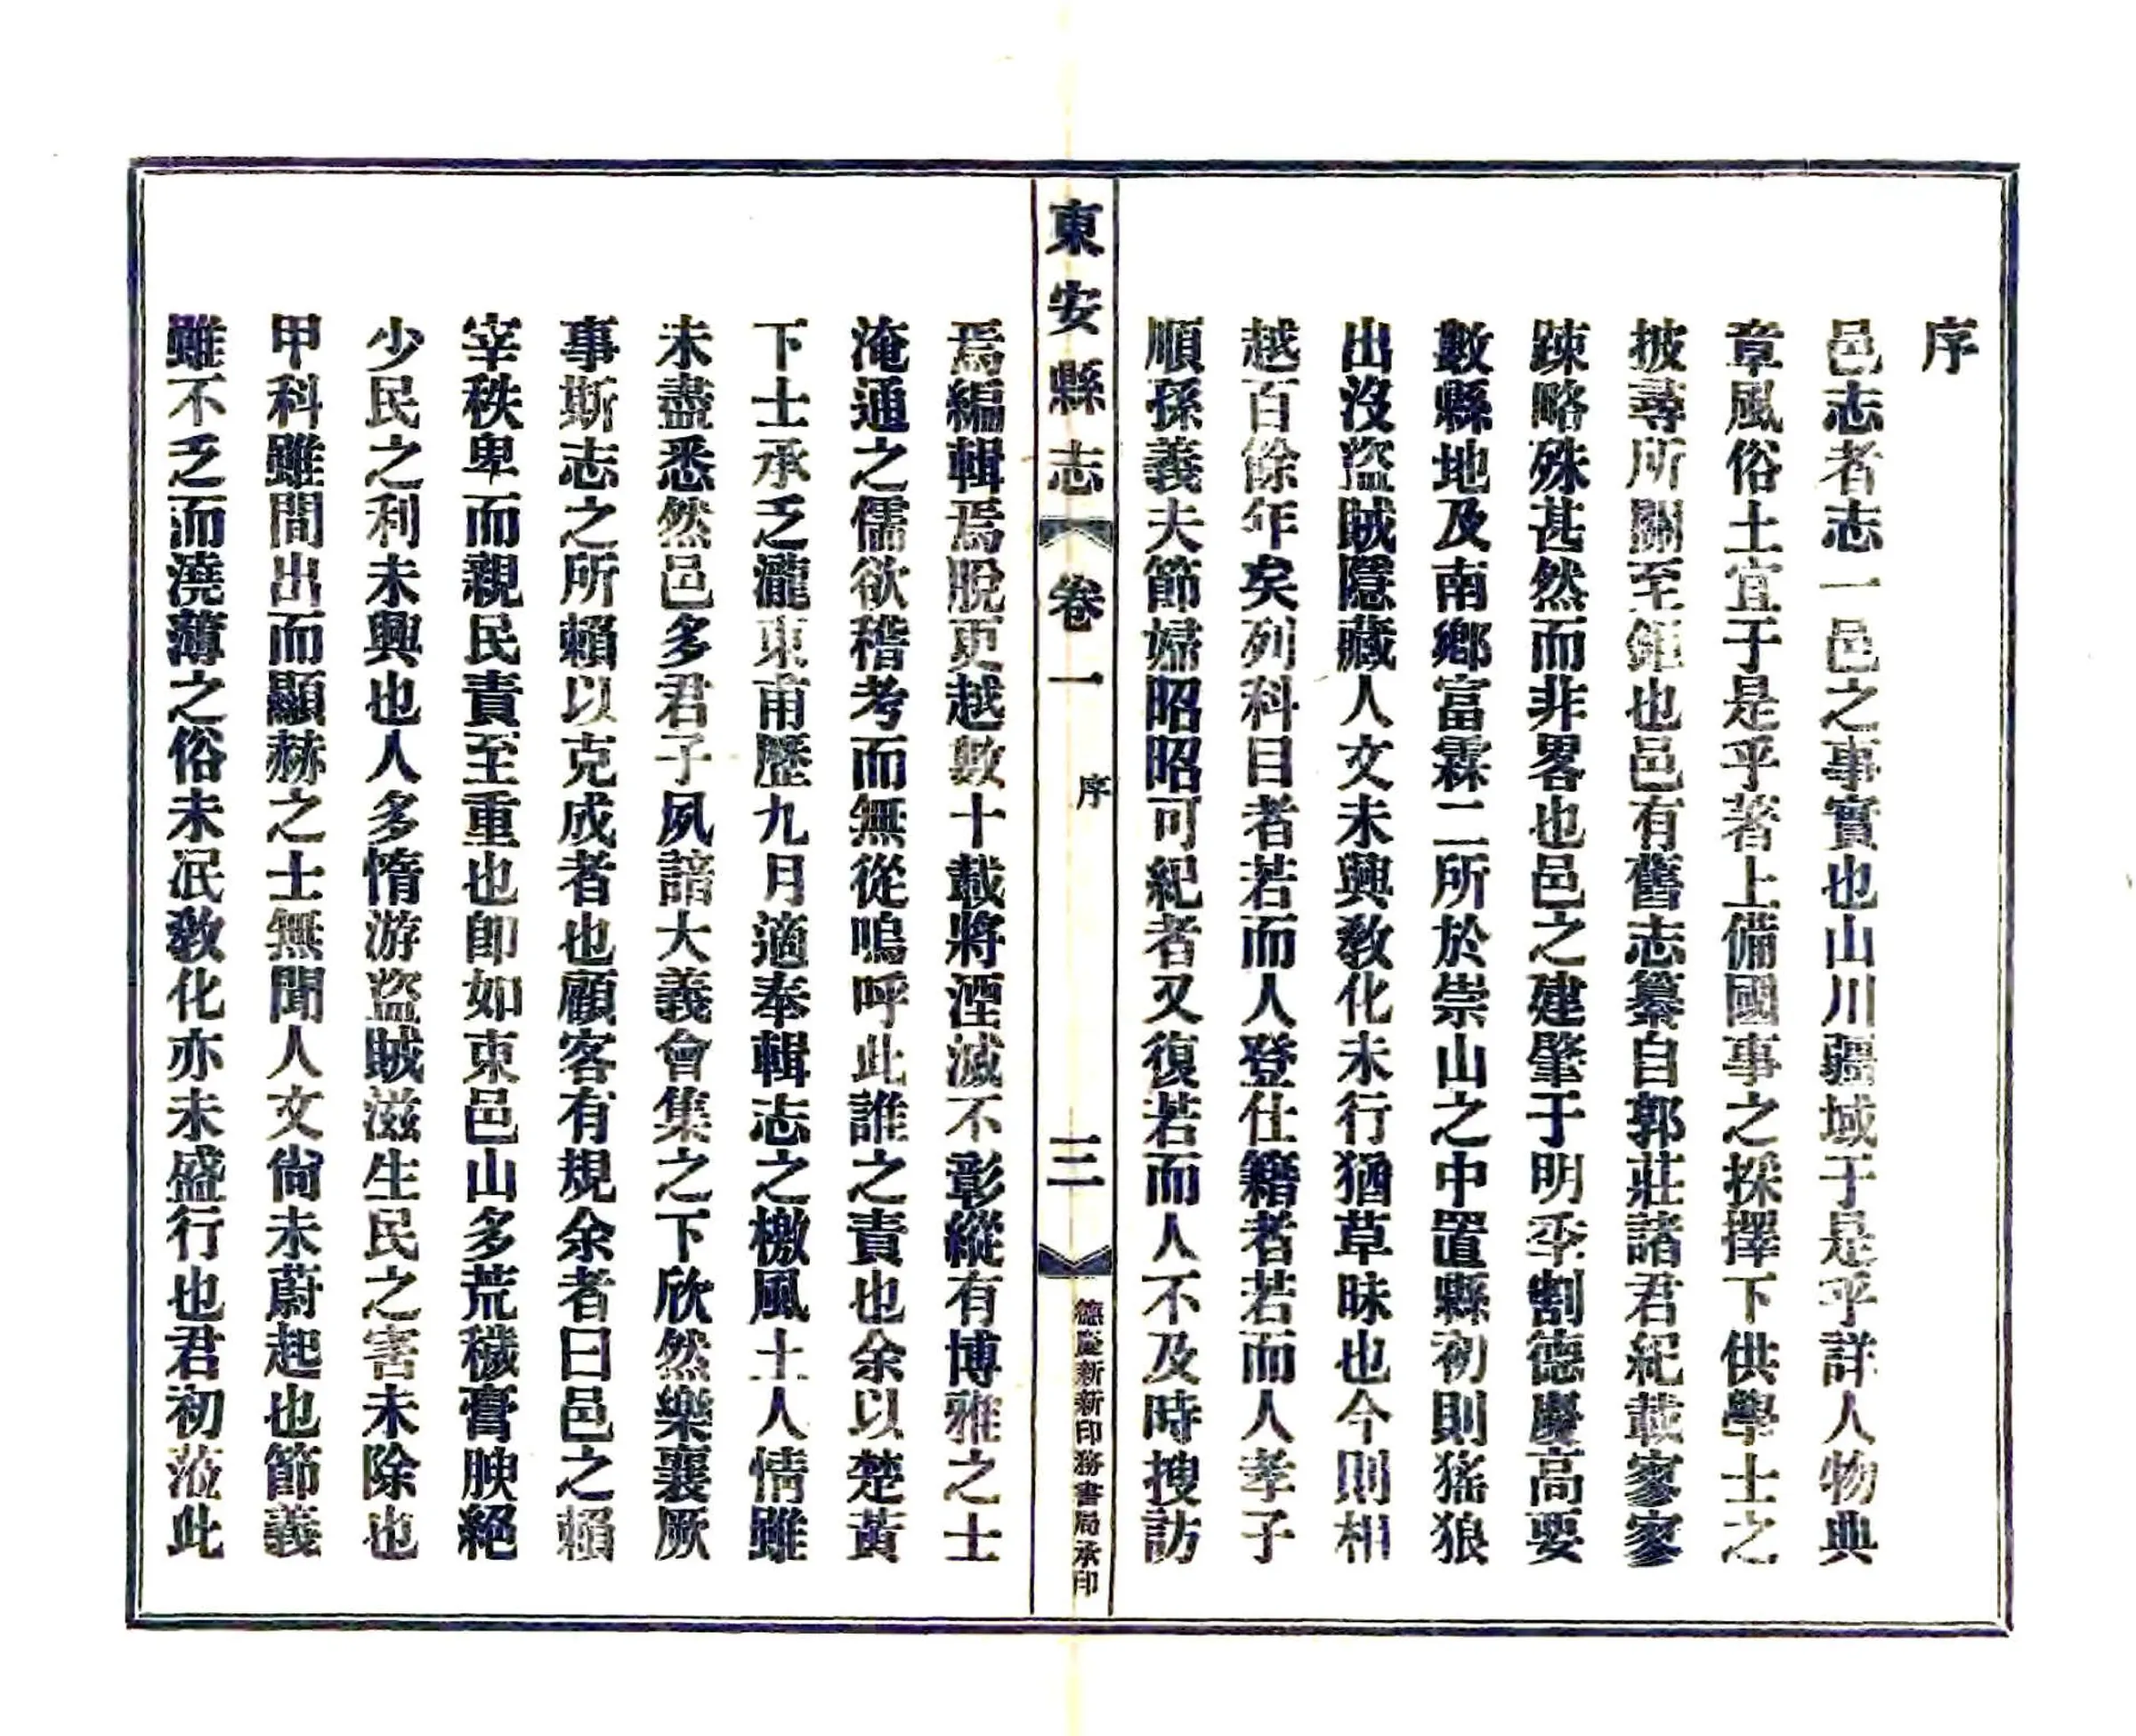 序
邑志者志一邑之事實也山川疆域于是乎詳人物典
章風俗土宜于是乎著上備國事之採擇下供學士之
披尋所關至鉅也邑有舊志纂自郭莊諸君紀載寥寥
踈略殊甚然而非畧也邑之建肇于明季割德慶高要
數縣地及南鄉富霖二所於崇山之中置縣初則猺狼
出沒盜賊隱藏人文未興敎化未行猶草昧也今則相
越百餘年矣列科目者若而人登仕籍者若而人孝子
順孫義夫節婦昭昭可紀者又復若而人不及時搜訪
東安縣志 卷一 序 三 德慶新新印務書局承印
焉編輯焉脫更越數十載將湮滅不彰縱有博雅之士
淹通之儒欲稽考而無從嗚呼此誰之責也余以楚黃
下士承乏瀧東甫歷九月適奉輯志之檄風土人情雖
未盡悉然邑多君子夙諳大義會集之下欣然樂襄厥
事斯志之所賴以克成者也顧客有規余者曰邑之賴
宰秩卑而親民責至重也卽如東邑山多荒穢膏腴絕
少民之利未興也人多惰游盜賊滋生民之害未除也
甲科雖間出而顯赫之士無聞人文尙未蔚起也節義
雖不乏而澆薄之俗未泯敎化亦未盛行也君初蒞此